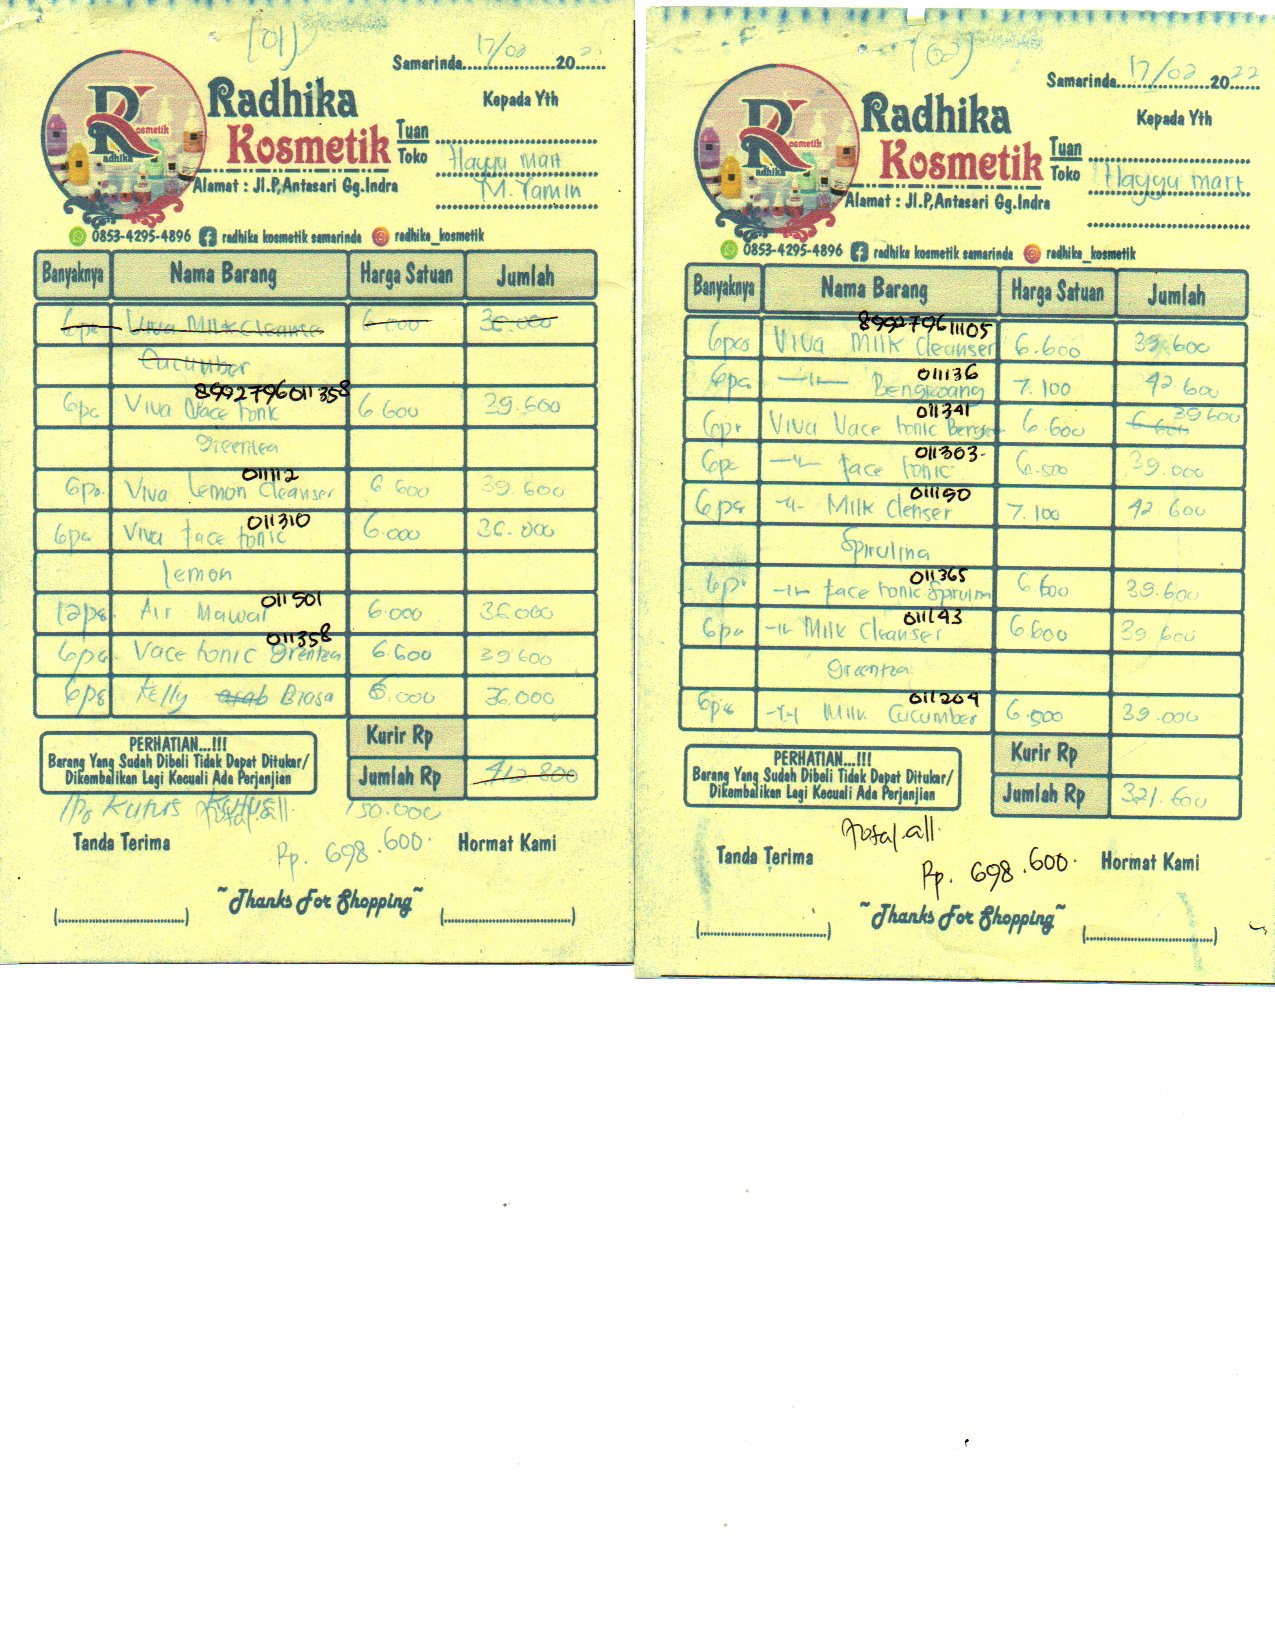 (01)
Samarinda 17/02 20
Radhika
Kosmetik
RK
adhika
osmetik
Kepada Yth
Tuan
Toko Hayyu Mart
M. Yamin
Alamat : Jl.P,Antasari Gg.Indra
0853-4295-4896 radhika kosmetik samarinda radhika_kosmetik
Banyaknya Nama Barang Harga Satuan Jumlah
6pc Viva Milk Cleanse 6.000 36.000
Cucumber
8992796011358
6pc Viva Vace tonic 6.600 39.600
greentea
011112
6pc Viva Lemon Cleanser 6.600 39.600
011310
6pc Viva face tonic 6.000 36.000
lemon
011501
12pc Air Mawar 6.000 36.000
011358
6pc Vace tonic Grentea 6.600 39.600
6pc Kelly arab Biasa 6.000 36.000
Kurir Rp
Jumlah Rp 412.800
PERHATIAN...!!!
Barang Yang Sudah Dibeli Tidak Dapat Ditukar/
Dikembalikan Lagi Kecuali Ada Perjanjian
Kutus Kutus 150.000
Total all
Rp. 698.600.
Tanda Terima Hormat Kami
~Thanks For Shopping~
Samarinda 17/02 2022
Radhika
Kosmetik
RK
adhika
osmetik
Kepada Yth
Tuan
Toko Hayyu Mart
Alamat : Jl.P,Antasari Gg.Indra
0853-4295-4896 radhika kosmetik samarinda radhika_kosmetik
Banyaknya Nama Barang Harga Satuan Jumlah
899279611105
6pcs Viva Milk Cleanser 6.600 39.600
011136
6pc -〃- Bengkoang 7.100 42.600
011341
6pc Viva Vace tonic Bengko 6.600 6.600 39.600
011303-
6pc -〃- face tonic 6.500 39.000
011150
6pc -〃- Milk Clenser 7.100 42.600
Spirulina
011365
6pc -〃- face tonic Spirulin 6.600 39.600
011143
6pc -〃- Milk Cleanser 6.600 39.600
greentea
011204
6pc -〃- Milk Cucumber 6.500 39.000
Kurir Rp
Jumlah Rp 321.600
PERHATIAN...!!!
Barang Yang Sudah Dibeli Tidak Dapat Ditukar/
Dikembalikan Lagi Kecuali Ada Perjanjian
Total all.
Rp. 698.600.
Tanda Terima Hormat Kami
~Thanks For Shopping~